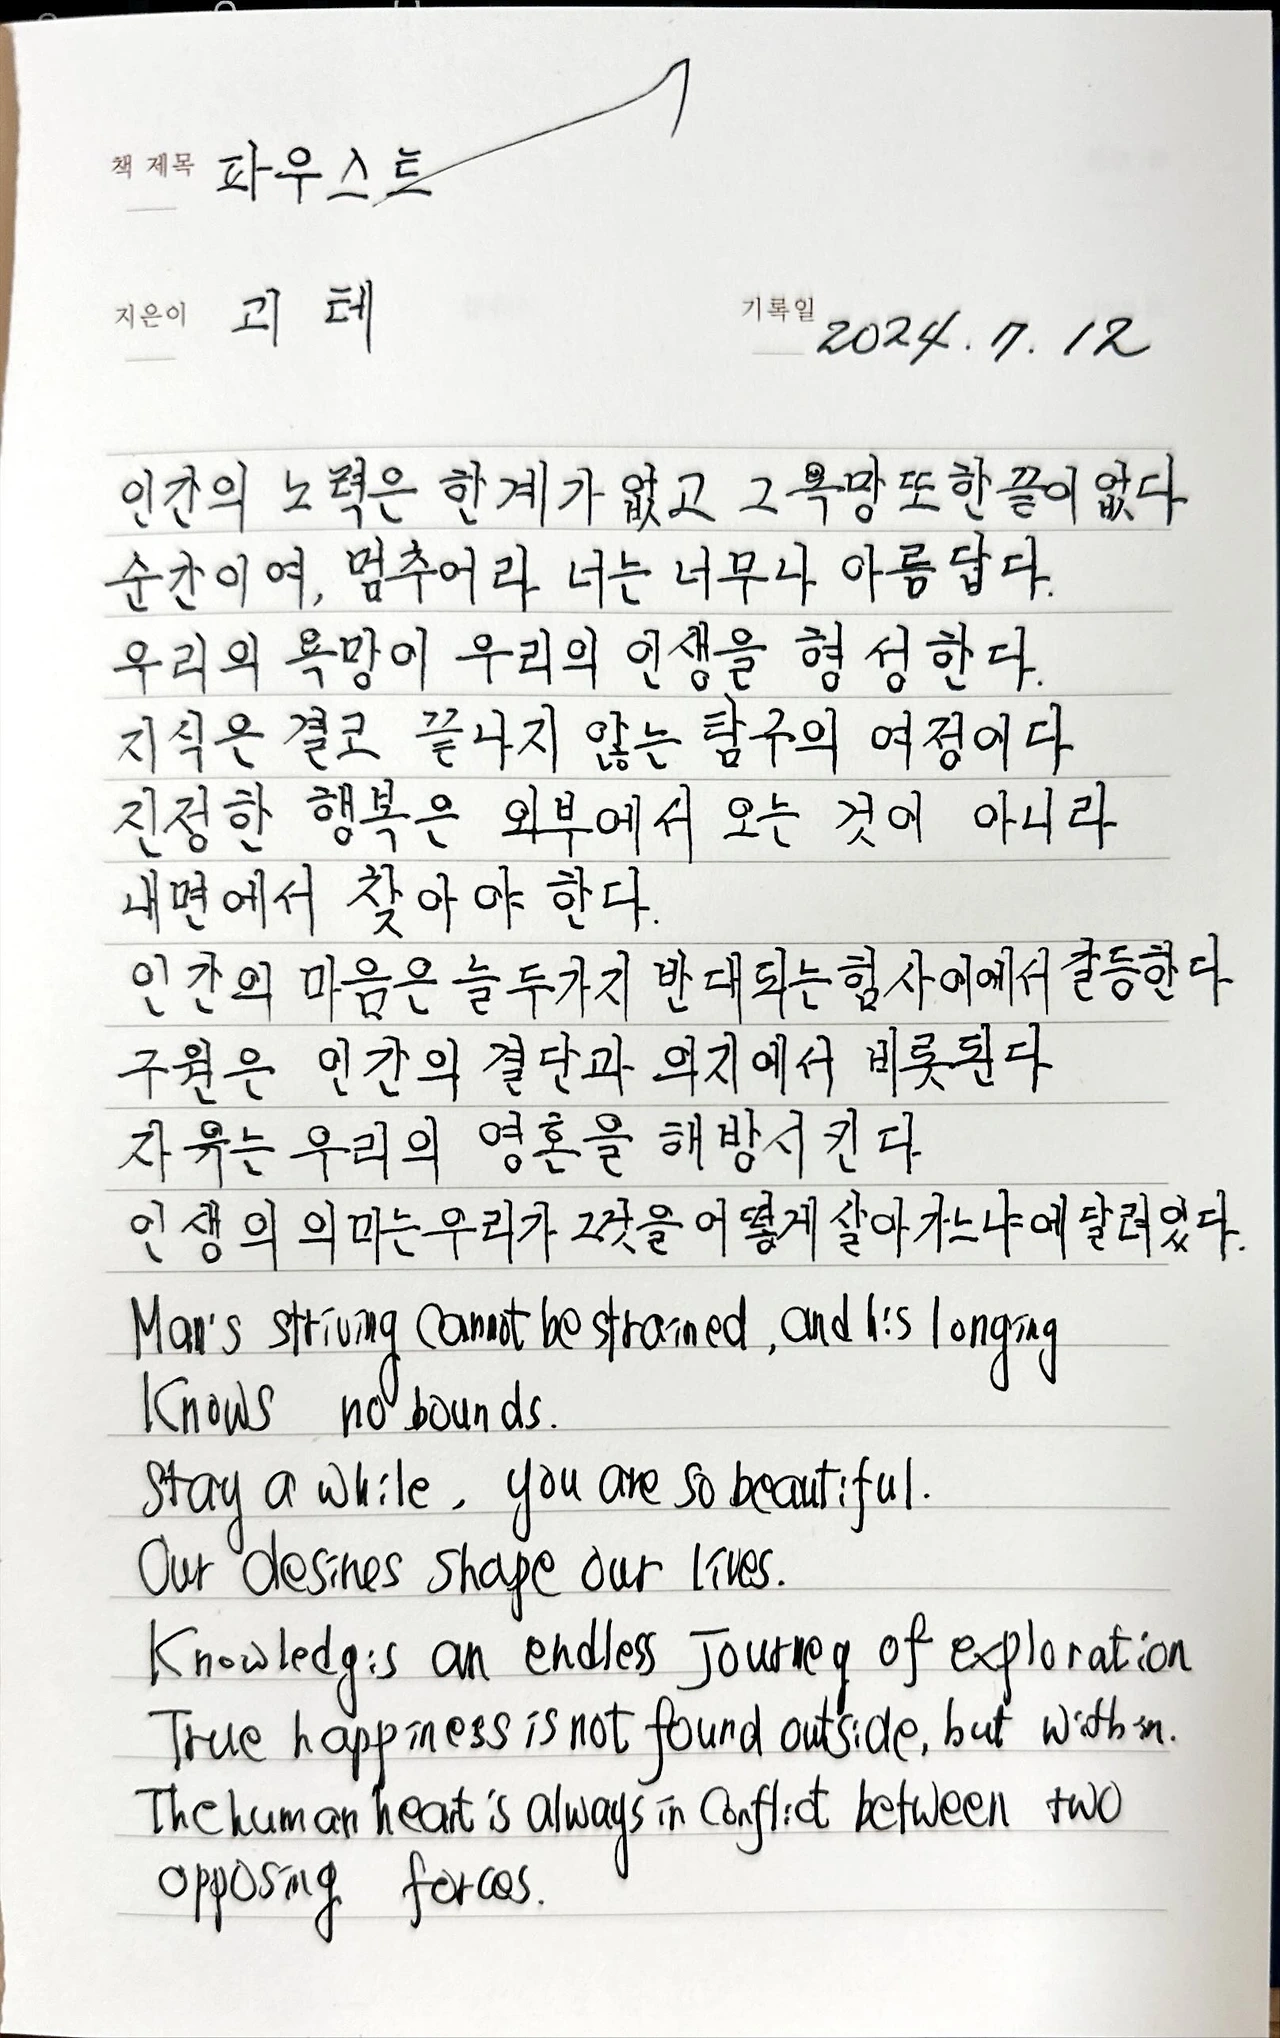 책 제목 파우스트
지은이 괴테
기록일 2024. 7. 12
인간의 노력은 한계가 없고 그 욕망 또한 끝이 없다
순간이여, 멈추어라 너는 너무나 아름답다.
우리의 욕망이 우리의 인생을 형성한다.
지식은 결코 끝나지 않는 탐구의 여정이다
진정한 행복은 외부에서 오는 것이 아니라
내면에서 찾아야 한다.
인간의 마음은 늘 두가지 반대되는 힘 사이에서 갈등한다
구원은 인간의 결단과 의지에서 비롯된다
자유는 우리의 영혼을 해방시킨다
인생의 의미는 우리가 그것을 어떻게 살아가느냐에 달려있다.
Man's striving cannot be strained, and his longing
Knows no bounds.
Stay a while, you are so beautiful.
Our desires shape our lives.
Knowledg is an endless Journey of exploration
True happiness is not found outside, but within.
The human heart is always in Conflict between two
opposing forces.